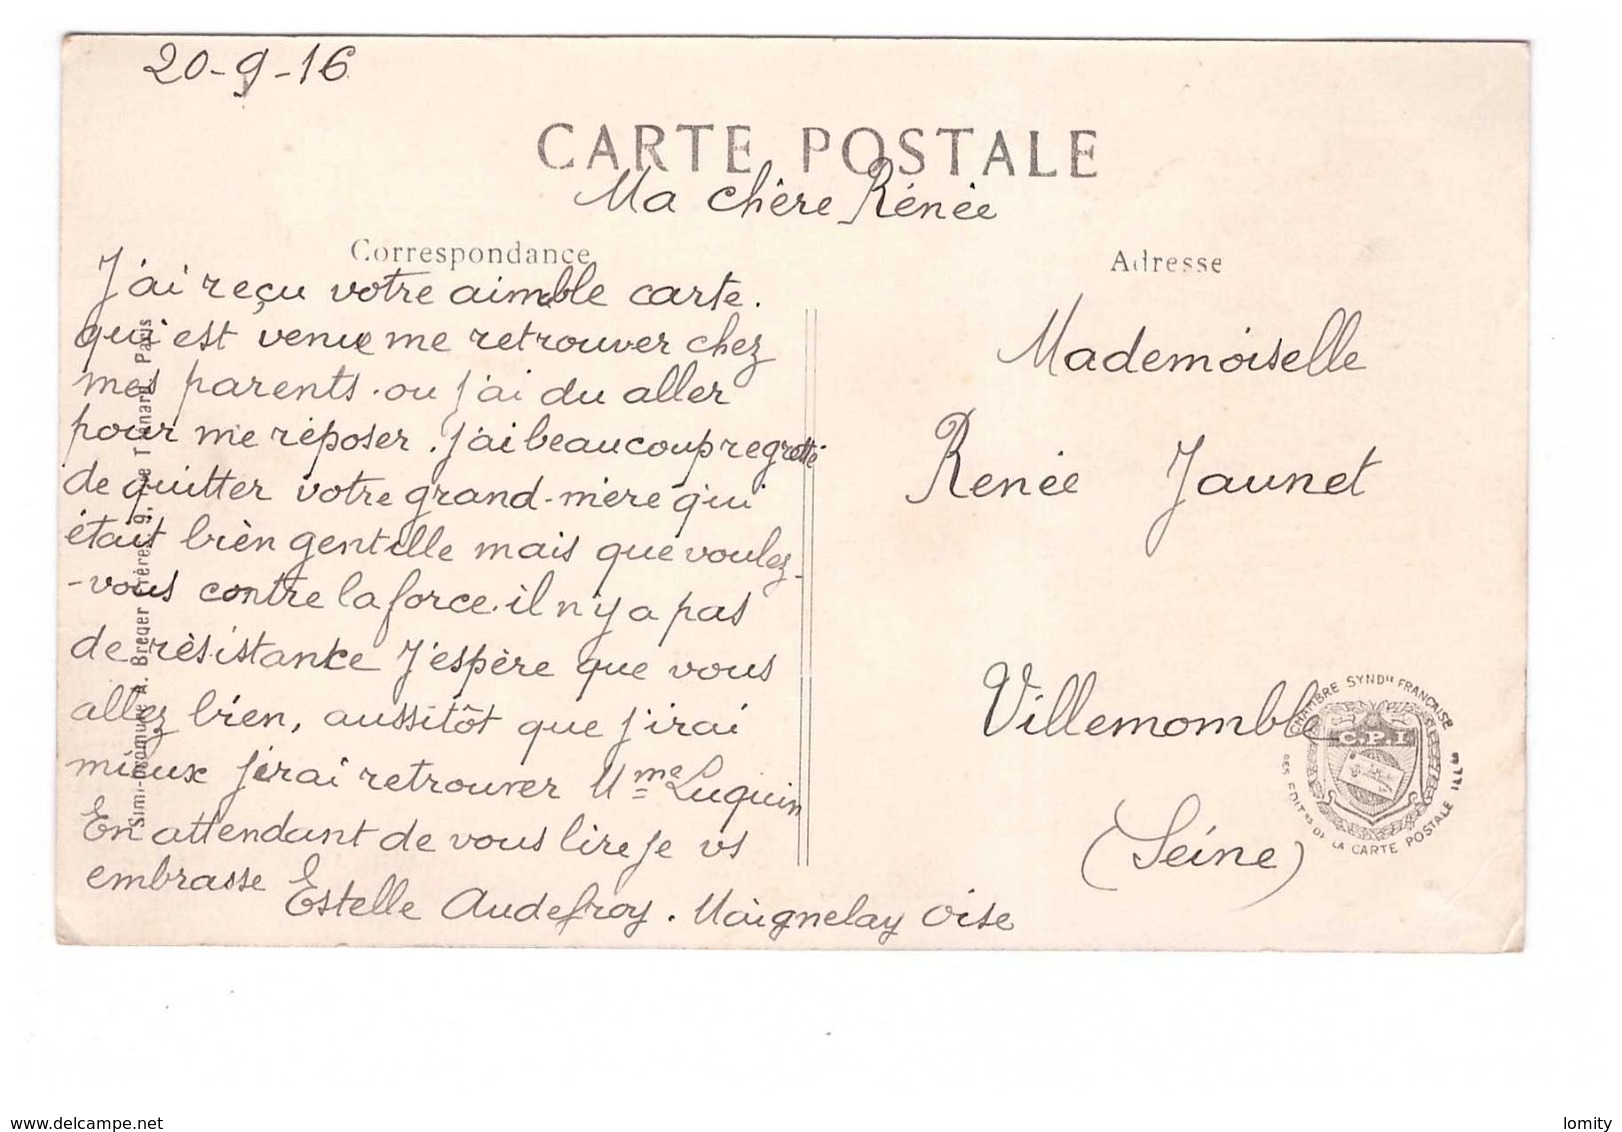 20-9-16
CARTE POSTALE
Ma chère Rénée
Correspondance
J'ai reçu votre aimable carte.
qui est venue me retrouver chez
mes parents. ou j'ai du aller
pour me réposer. J'ai beaucoup regretté
de quitter votre grand-mère qui
était bièn gentille mais que voulez-
-vous contre la force. il n'y a pas
de rèsistance J'espère que vous
allez bien, aussitôt que j'irai
mieux j'irai retrouver Mme Luquin
En attendant de vous lire je vs
embrasse Estelle Audefroy. Maignelay Oise
Simi-bromure A. Breger Frères, 9, rue Thénard, Paris
Adresse
Mademoiselle
Renée Jaunet
Villemomble
(Séine)
CHAMBRE SYNDle FRANÇAISE
C.P.I
DES EDITrs DE LA CARTE POSTALE ILLee
www.delcampe.net
lomity